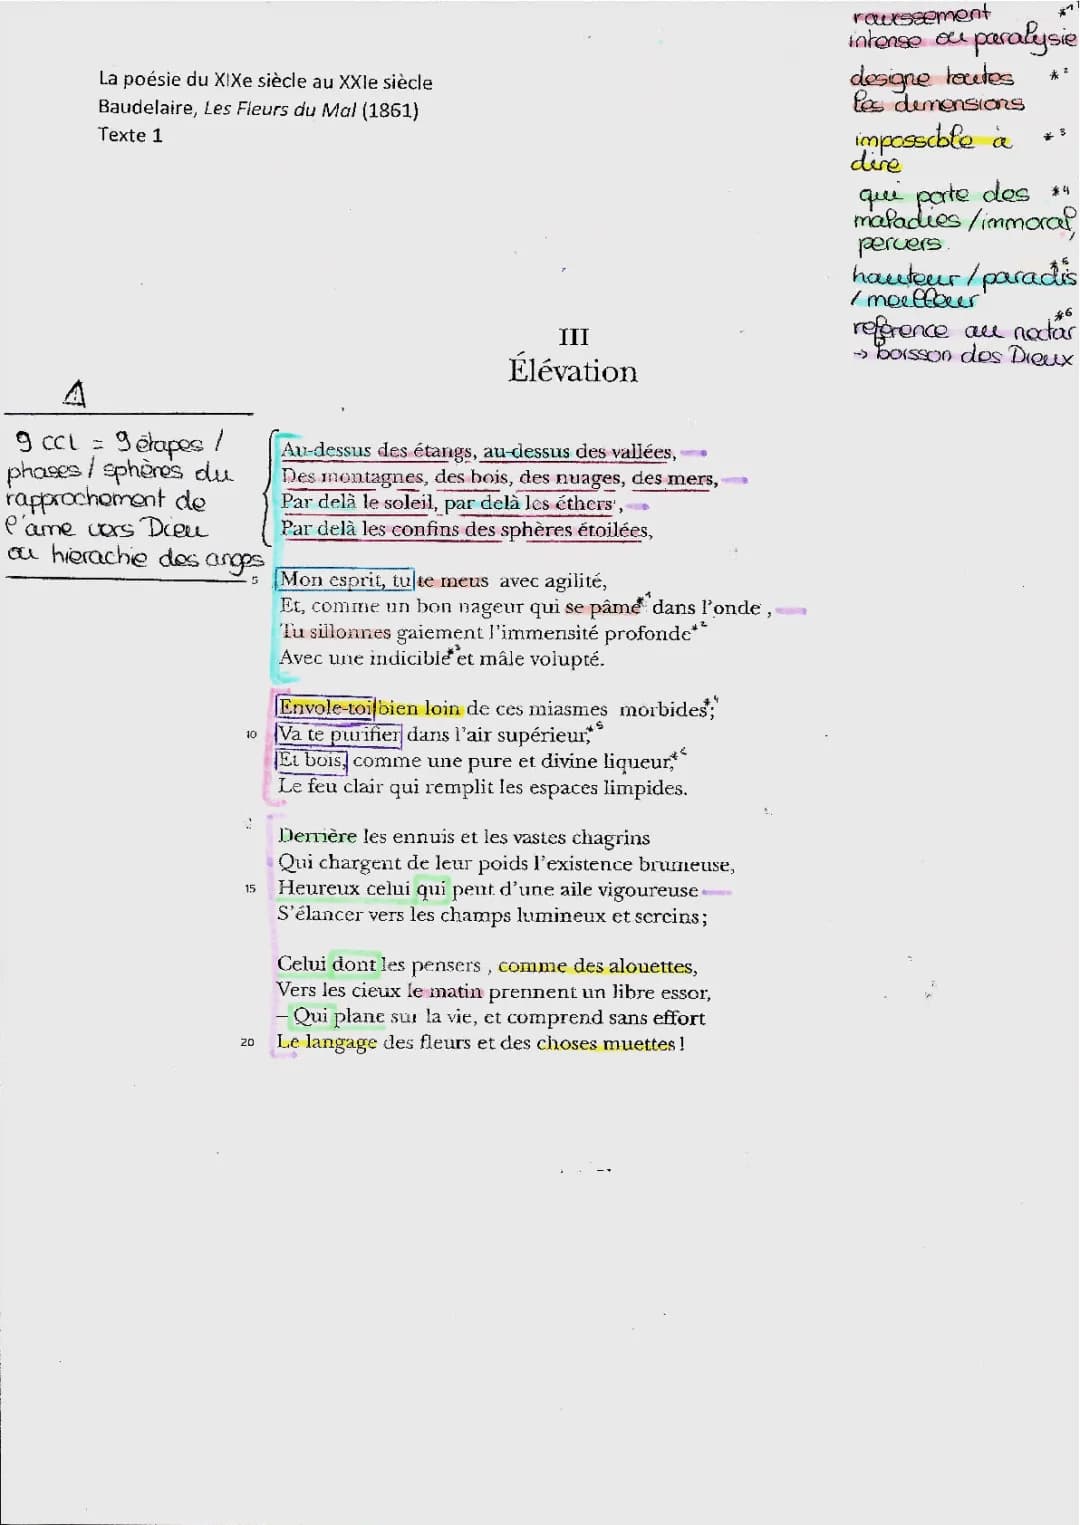 La poésie du XIXe siècle au XXIe siècle
Baudelaire, Les Fleurs du Mal (1861)
Texte 1
intense ou paralysie
*1
designe toutes *2
les dimensions
impossible à *3
dire
qui porte des *4
maladies / immoral,
pervers.
hauteur / paradis *5
/ meilleur
*6
reference au nectar
-> boisson des Dieux
III
Élévation
9 CCL = 9 étapes /
phases / sphères du
rapprochement de
l'âme vers Dieu
ou hierachie des anges
Au-dessus des étangs, au-dessus des vallées,
Des montagnes, des bois, des nuages, des mers,
Par delà le soleil, par delà les éthers,
Par delà les confins des sphères étoilées,
5 Mon esprit, tu te meus avec agilité,
Et, comme un bon nageur qui se pâme*1 dans l'onde,
Tu sillonnes gaiement l'immensité profonde*2
Avec une indicible*3 et mâle volupté.
Envole-toi bien loin de ces miasmes morbides*4;
10 Va te purifier dans l'air supérieur,*5
Et bois, comme une pure et divine liqueur,*6
Le feu clair qui remplit les espaces limpides.
Derrière les ennuis et les vastes chagrins
Qui chargent de leur poids l'existence brumeuse,
15 Heureux celui qui peut d'une aile vigoureuse
S'élancer vers les champs lumineux et sereins;
Celui dont les pensers, comme des alouettes,
Vers les cieux le matin prennent un libre essor,
– Qui plane sur la vie, et comprend sans effort
20 Le langage des fleurs et des choses muettes !